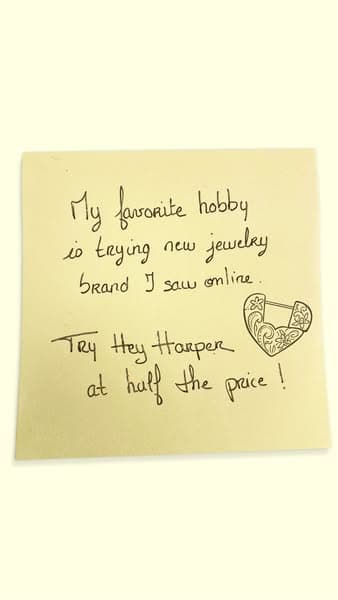 My favorite hobby
is trying new jewelry
brand I saw online.
Try Hey Harper
at half the price!